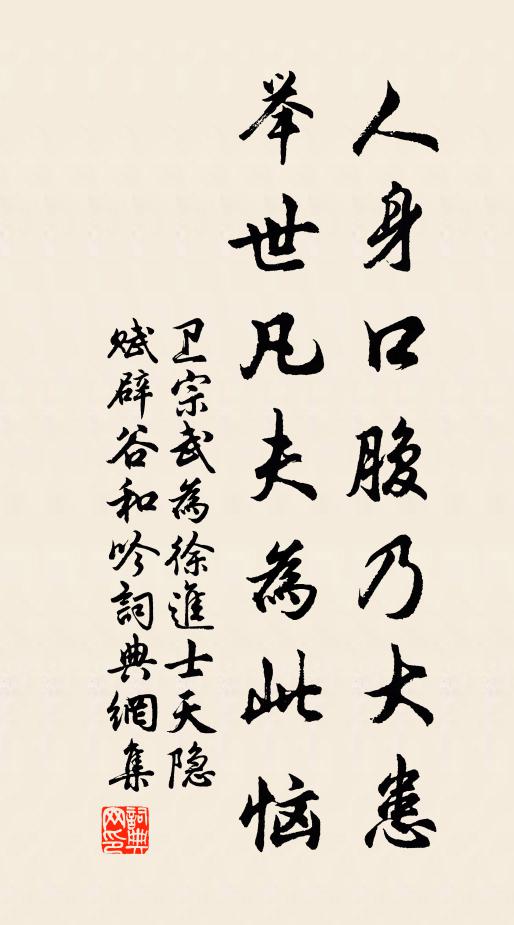 人身口腹乃大患
举世凡夫為此恼
卫宗武為徐進士天隐
赋辟谷和吟詞典網集
詞典网印